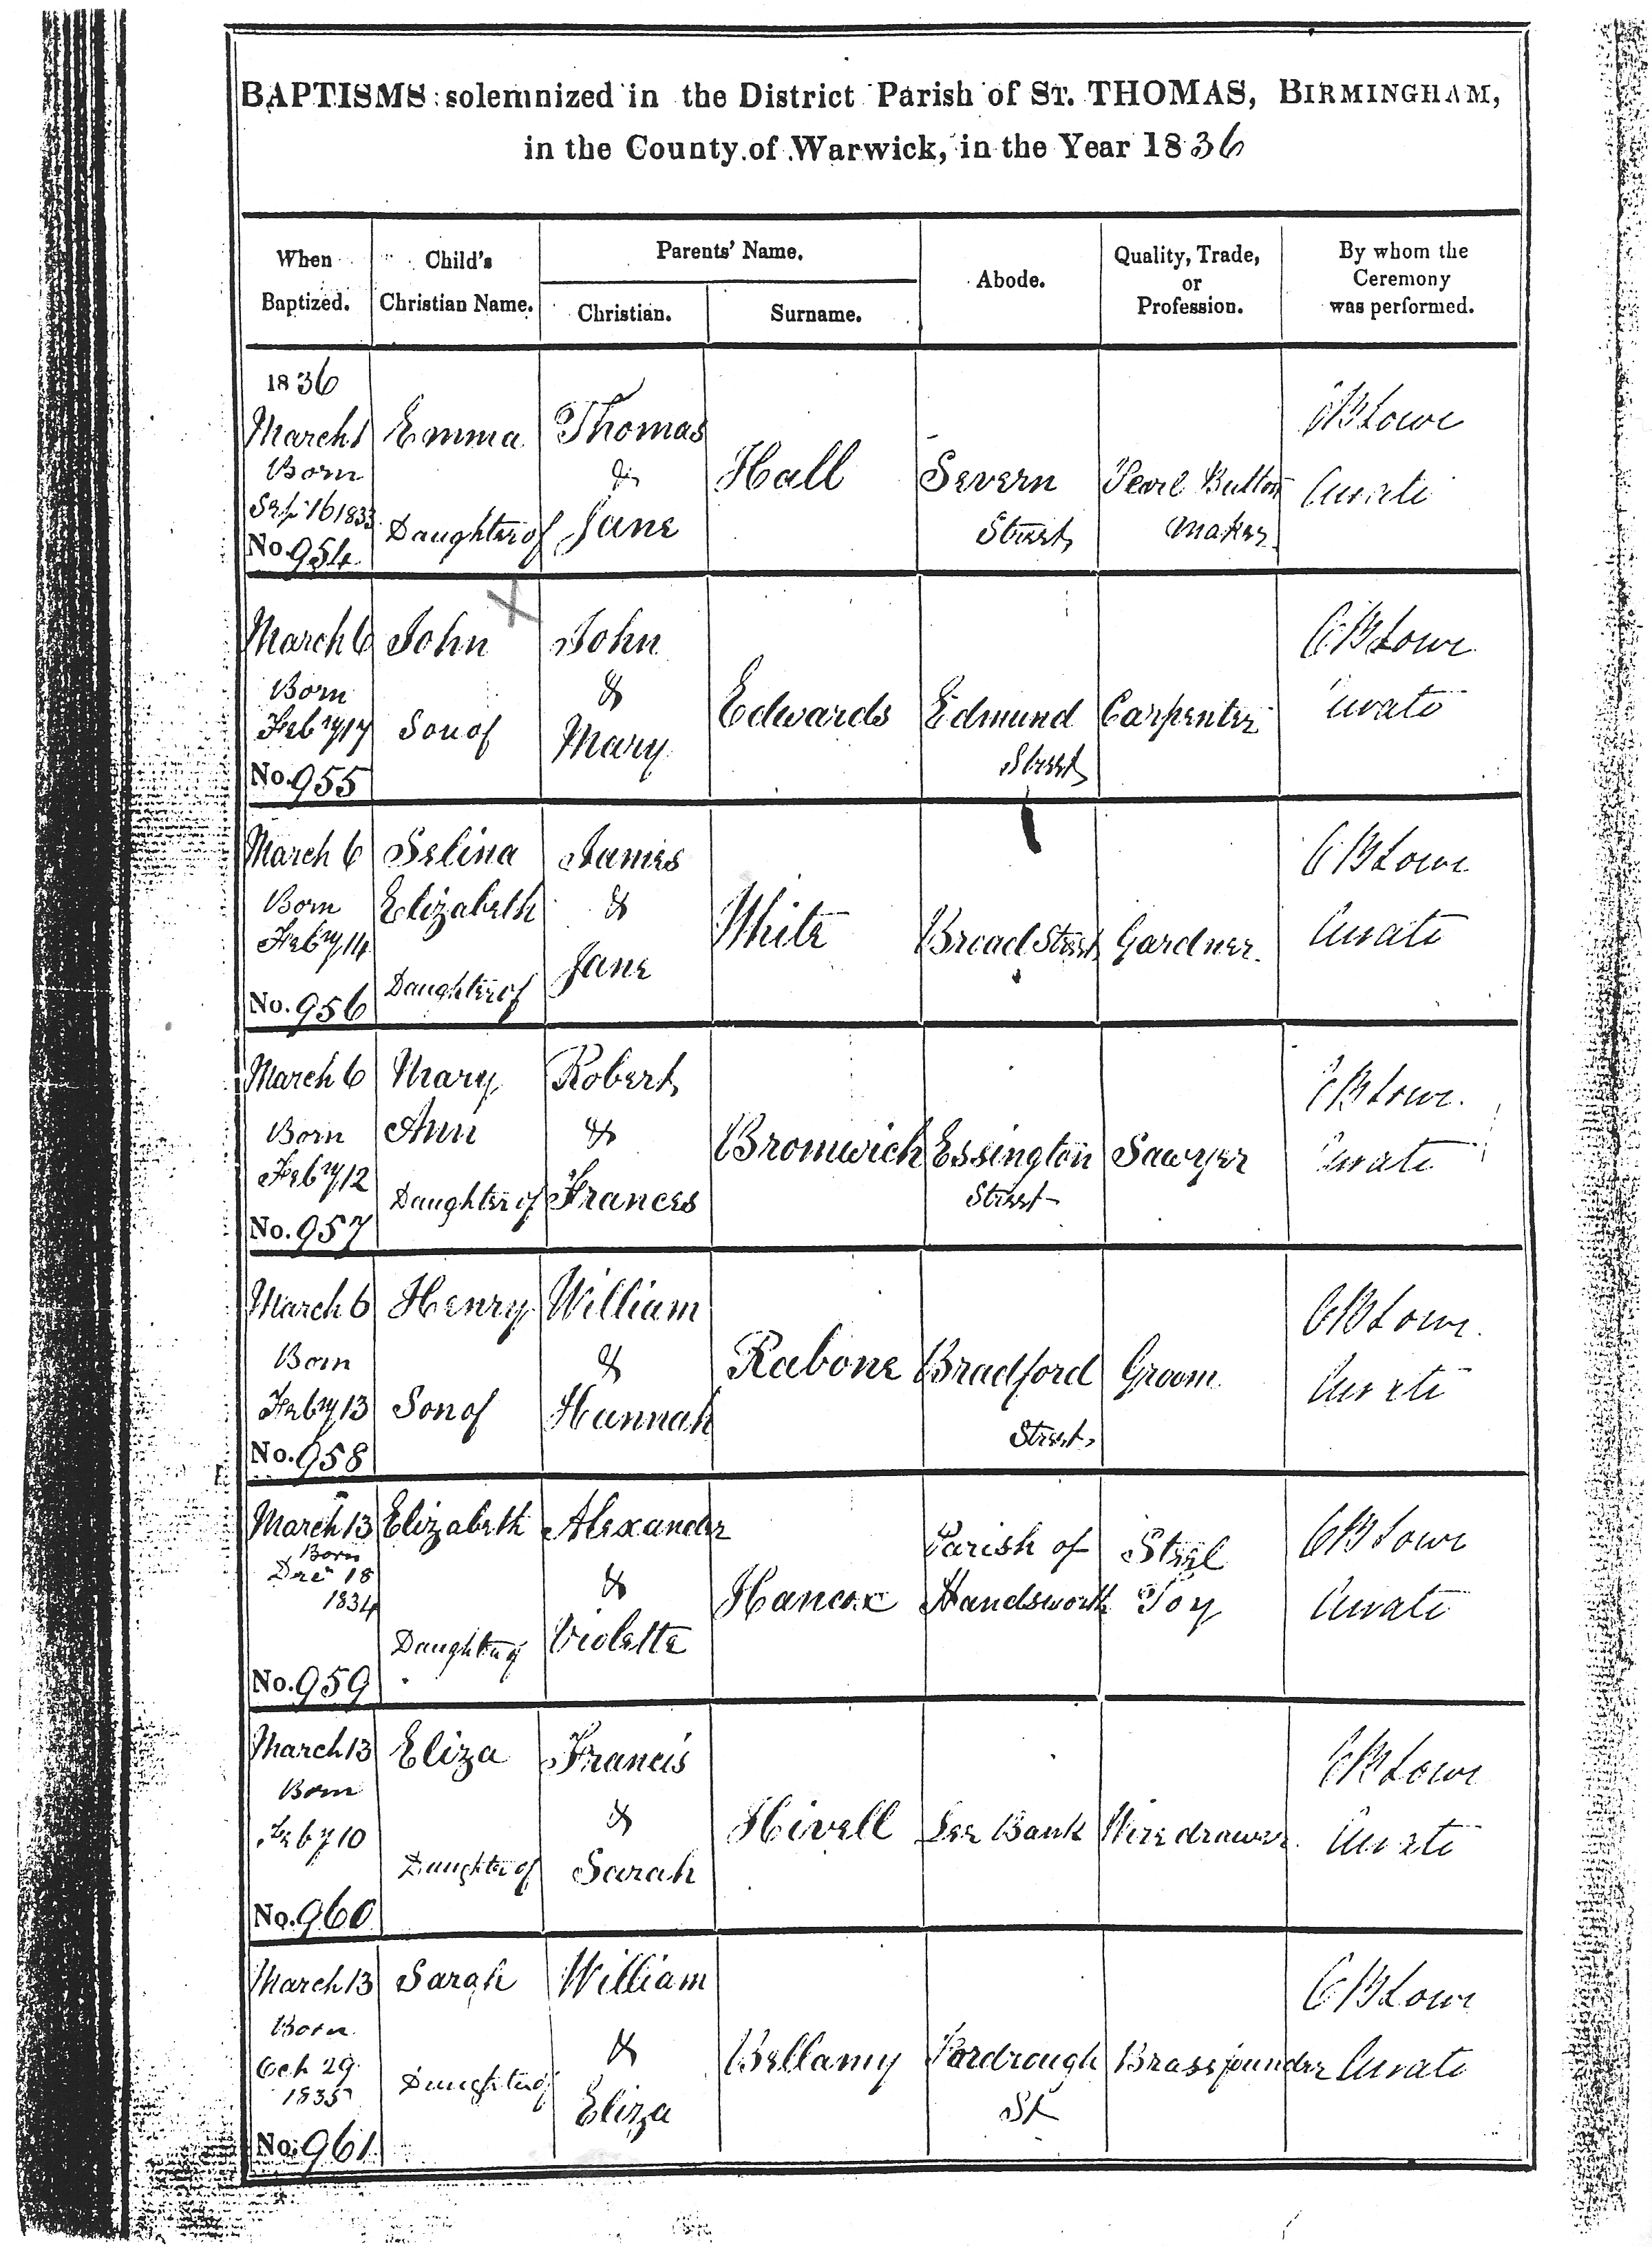 BAPTISMS solemnized in the District Parish of St. THOMAS, BIRMINGHAM,
in the County of Warwick, in the Year 1836
When Baptized.
Child's Christian Name.
Parents' Name.
Christian.
Surname.
Abode.
Quality, Trade, or Profession.
By whom the Ceremony was performed.
1836
March 1 Emma Thomas
Born & Hall Severn Pearl Button
Sep 16 1833 Daughter of Jane Street Maker
No. 954
CB Lowe
Curate
March 6 John X John
Born & Edwards Edmund Carpenter
Feby 17 Son of Mary Street
No. 955
CB Lowe
Curate
March 6 Selina James
Born Elizabeth & White Broad Street Gardner
Feby 14 Daughter of Jane
No. 956
CB Lowe
Curate
March 6 Mary Robert
Born Ann & Bromwich Essington Sawyer
Feby 12 Daughter of Frances Street
No. 957
CB Lowe
Curate
March 6 Henry William
Born & Rabone Bradford Groom
Feby 13 Son of Hannah Street
No. 958
CB Lowe
Curate
March 13 Elizabeth Alexander Parish of Steel
Born & Hancox Handsworth Toy
Dec 18
1834
Daughter of Violette
No. 959
CB Lowe
Curate
March 13 Eliza Francis
Born & Hivell Lee Bank Wire drawer
Feby 10 Daughter of Sarah
No. 960
CB Lowe
Curate
March 13 Sarah William
Born & Bellamy Fordrough Brassfounder
Oct 29
1835
Daughter of Eliza St
No. 961
CB Lowe
Curate